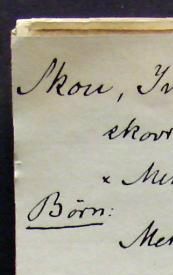 Skou, Iv
skovr
× Me
Børn:
Mer